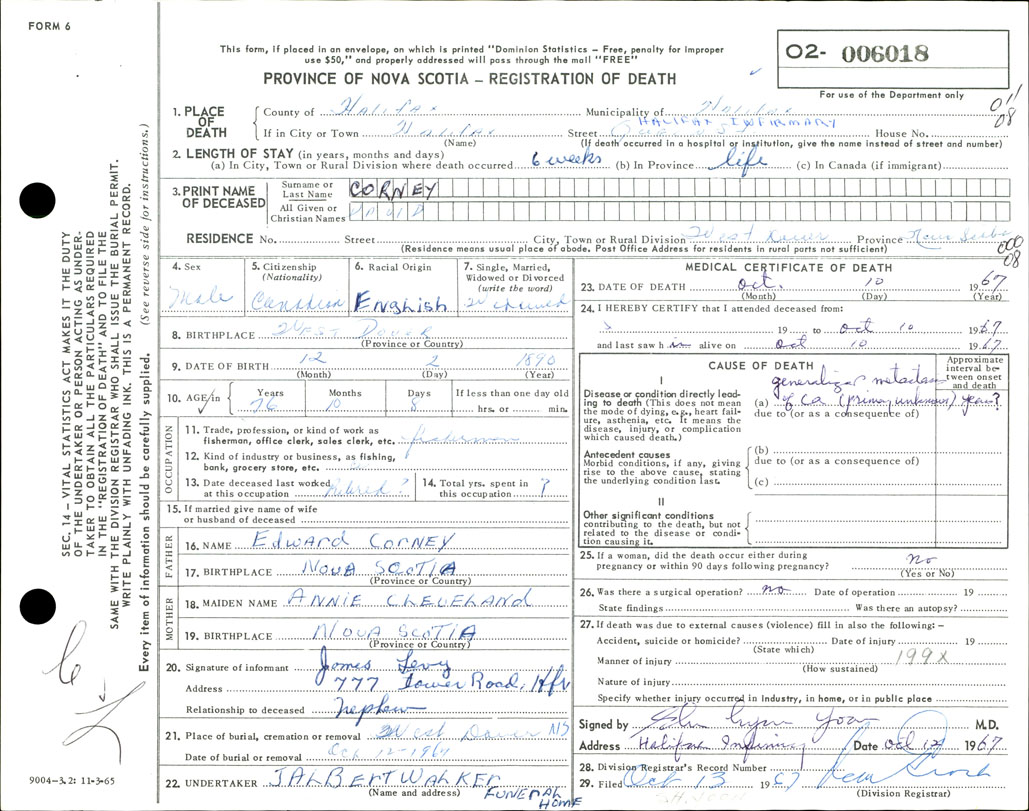 FORM 6
This form, if placed in an envelope, on which is printed "Dominion Statistics – Free, penalty for improper
use $50," and properly addressed will pass through the mail "FREE"
PROVINCE OF NOVA SCOTIA – REGISTRATION OF DEATH
O2- 006018
For use of the Department only
011
08
SEC. 14 – VITAL STATISTICS ACT MAKES IT THE DUTY
OF THE UNDERTAKER OR PERSON ACTING AS UNDER-
TAKER TO OBTAIN ALL THE PARTICULARS REQUIRED
IN THE "REGISTRATION OF DEATH" AND TO FILE THE
SAME WITH THE DIVISION REGISTRAR WHO SHALL ISSUE THE BURIAL PERMIT.
WRITE PLAINLY WITH UNFADING INK. THIS IS A PERMANENT RECORD.
Every item of information should be carefully supplied. (See reverse side for instructions.)
1. PLACE OF DEATH
County of Halifax Municipality of Halifax
HALIFAX INFIRMARY
If in City or Town Halifax Street House No.
(Name) (If death occurred in a hospital or institution, give the name instead of street and number)
2. LENGTH OF STAY (in years, months and days)
(a) In City, Town or Rural Division where death occurred 6 weeks (b) In Province life (c) In Canada (if immigrant)
3. PRINT NAME OF DECEASED
Surname or Last Name CORNEY
All Given or Christian Names DAVID
RESIDENCE No. Street City, Town or Rural Division West Dover Province Nova Scotia
(Residence means usual place of abode. Post Office Address for residents in rural parts not sufficient)
000
08
4. Sex
Male
5. Citizenship
(Nationality)
Canadian
6. Racial Origin
English
7. Single, Married,
Widowed or Divorced
(write the word)
Widowed
8. BIRTHPLACE West Dover
(Province or Country)
9. DATE OF BIRTH 12 2 1890
(Month) (Day) (Year)
10. AGE in Years Months Days If less than one day old
76 10 8 hrs. or min.
OCCUPATION
11. Trade, profession, or kind of work as
fisherman, office clerk, sales clerk, etc. fisherman
12. Kind of industry or business, as fishing,
bank, grocery store, etc.
13. Date deceased last worked
at this occupation Retired ?
14. Total yrs. spent in
this occupation ?
15. If married give name of wife
or husband of deceased
FATHER
16. NAME Edward Corney
17. BIRTHPLACE NOVA SCOTIA
(Province or Country)
MOTHER
18. MAIDEN NAME ANNIE CLEVELAND
19. BIRTHPLACE NOVA SCOTIA
(Province or Country)
20. Signature of informant James Levy
Address 777 Tower Road, Hfx
Relationship to deceased Nephew
21. Place of burial, cremation or removal West Dover NS
Date of burial or removal Oct 12-1967
22. UNDERTAKER J ALBERT WALKER
(Name and address) FUNERAL
HOME
9004-3.2: 11-3-65
MEDICAL CERTIFICATE OF DEATH
23. DATE OF DEATH Oct. 10 1967
(Month) (Day) (Year)
24. I HEREBY CERTIFY that I attended deceased from:
19 to Oct 10 1967
and last saw him alive on Oct 10 1967
CAUSE OF DEATH
Approximate
interval be-
tween onset
and death
I
Disease or condition directly lead-
ing to death (This does not mean
the mode of dying, e.g., heart fail-
ure, asthenia, etc. It means the
disease, injury, or complication
which caused death.)
generalized metastases
(a) of Ca (primary unknown) years?
due to (or as a consequence of)
Antecedent causes
Morbid conditions, if any, giving
rise to the above cause, stating
the underlying condition last.
(b)
due to (or as a consequence of)
(c)
II
Other significant conditions
contributing to the death, but not
related to the disease or condi-
tion causing it.
25. If a woman, did the death occur either during
pregnancy or within 90 days following pregnancy? No
(Yes or No)
26. Was there a surgical operation? No Date of operation 19
State findings Was there an autopsy?
27. If death was due to external causes (violence) fill in also the following: –
Accident, suicide or homicide? Date of injury 19
(State which)
Manner of injury 199X
(How sustained)
Nature of injury
Specify whether injury occurred in industry, in home, or in public place
Signed by M.D.
Address Halifax Infirmary Date Oct 12 1967
28. Division Registrar's Record Number
29. Filed Oct 13 1967
(Division Registrar)